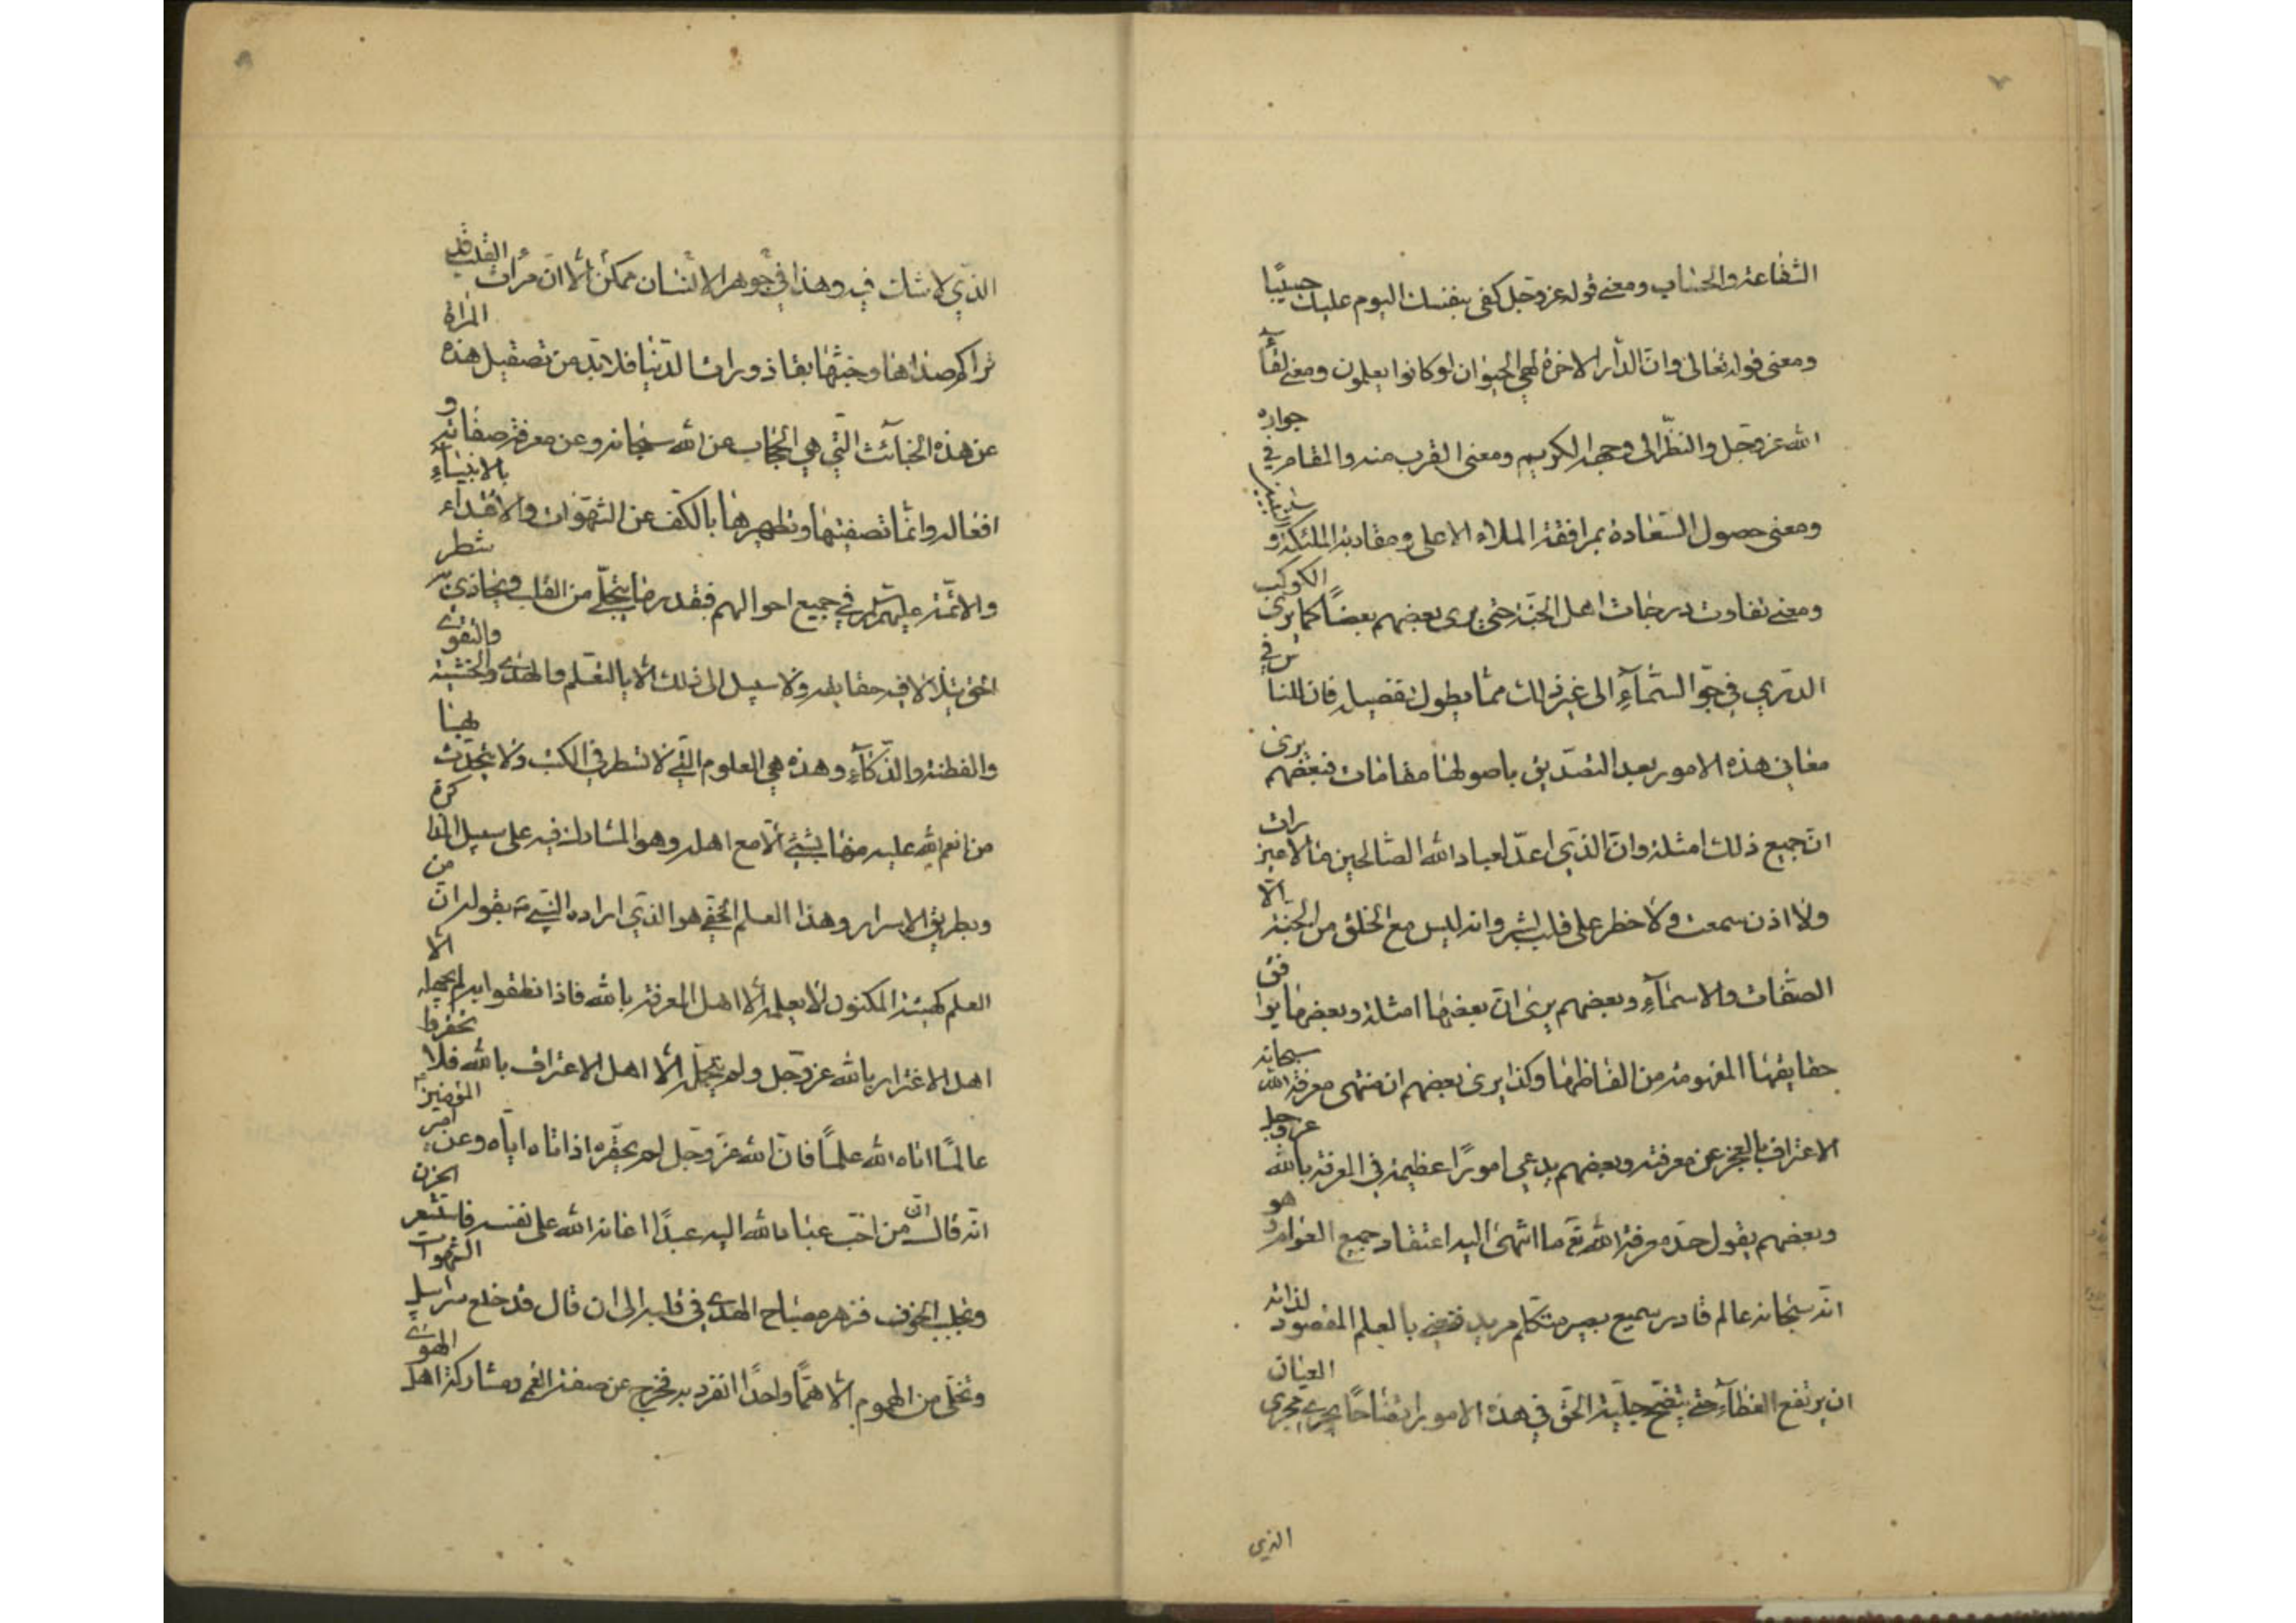 الشفاعة والحساب ومعنى قوله عز وجل كفى بنفسك اليوم عليك حسيبًا
ومعنى قوله تعالى وان الدار الاخرة لهي الحيوان لو كانوا يعلمون ومعنى لقآء
الله عز وجل والنظر الى وجهه الكريم ومعنى القرب منه والمقام في جواره
ومعنى حصول السعادة بمرافقة الملاء الاعلى ومقاربة الملئكة و النبيين
ومعنى تفاوت درجات اهل الجنة حتى يرى بعضهم بعضًا كما يرى الكوكب
الدري في جو السمآء الى غير ذلك مما يطول تفصيله فان للناس في
معاني هذه الامور بعد التصديق باصولها مقامات فبعضهم يرى
ان جميع ذلك امثلة وان الذي اعد لعباد الله الصالحين ما لا عين رات
ولا اذن سمعت ولا خطر على قلب بشر وانه ليس مع الخلق من الجنة الا
الصفات والاسمآء وبعضهم يرى ان بعضها امثلة وبعضها يوافق
حقايقها المفهومة من الفاظها وكذا يرى بعضهم ان منتهى معرفة الله سبحانه
الاعتراف بالعجز عن معرفته وبعضهم يدعي امورًا عظيمة في المعرفة بالله عز وجل
وبعضهم يقول حد معرفة الله تع ما انتهى اليه اعتقاد جميع العوام و هو
انه سبحانه عالم قادر سميع بصير متكلم مريد فنعني بالعلم المقصود لذاته
ان يرتفع الغطآء حتى يتضح جلية الحق في هذه الامور اتضاحًا يجري مجرى العيان
الذي
الذي لا شك فيه وهذا في جوهر الانسان ممكن الا ان مرات القلب قد
تراكم صداها وخبثها بقاذورات الدنيا فلا بد من تصقيل هذه المراة
عن هذه الخبائث التي هي الحجاب عن الله سبحانه وعن معرفة صفاته و
افعاله وانما تصفيتها وتطهيرها بالكف عن الشهوات والاقتداء بالانبيآء
والائمة عليهم السلم في جميع احوالهم فبقدر ما يتجلى من القلب ويحاذي به شطر
الحق يتلالا فيه حقايقه ولا سبيل الى ذلك الا بالتعلم والهدى والخشية والتقوى
والفطنة والذكآء وهذه هي العلوم التي لا تسطر في الكتب ولا يتحدث بها
من انعم الله عليه منها بشيء الا مع اهله وهو المشارك فيه على سبيل المذاكرة
وبطريق الاسرار وهذا العلم الخفي هو الذي اراده النبي ص بقوله ان من
العلم كهيئة المكنون لا يعلمه الا اهل المعرفة بالله فاذا نطقوا به لم يجهله الا
اهل الاغترار بالله عز وجل ولم يتحمله الا اهل الاعتراف بالله فلا تحقروا
عالمًا اتاه الله علمًا فان الله عز وجل لم يحقره اذ اتاه اياه وعن امير المؤمنين ع
انه قال ان من احب عباد الله اليه عبدًا اعانه الله على نفسه فاستشعر الحزن
وتجلبب الخوف فزهر مصباح الهدى في قلبه الى ان قال قد خلع سرابيل الشهوات
وتخلى من الهموم الا همًا واحدًا انفرد به فخرج عن صفة العمى ومشاركة اهل الهوى